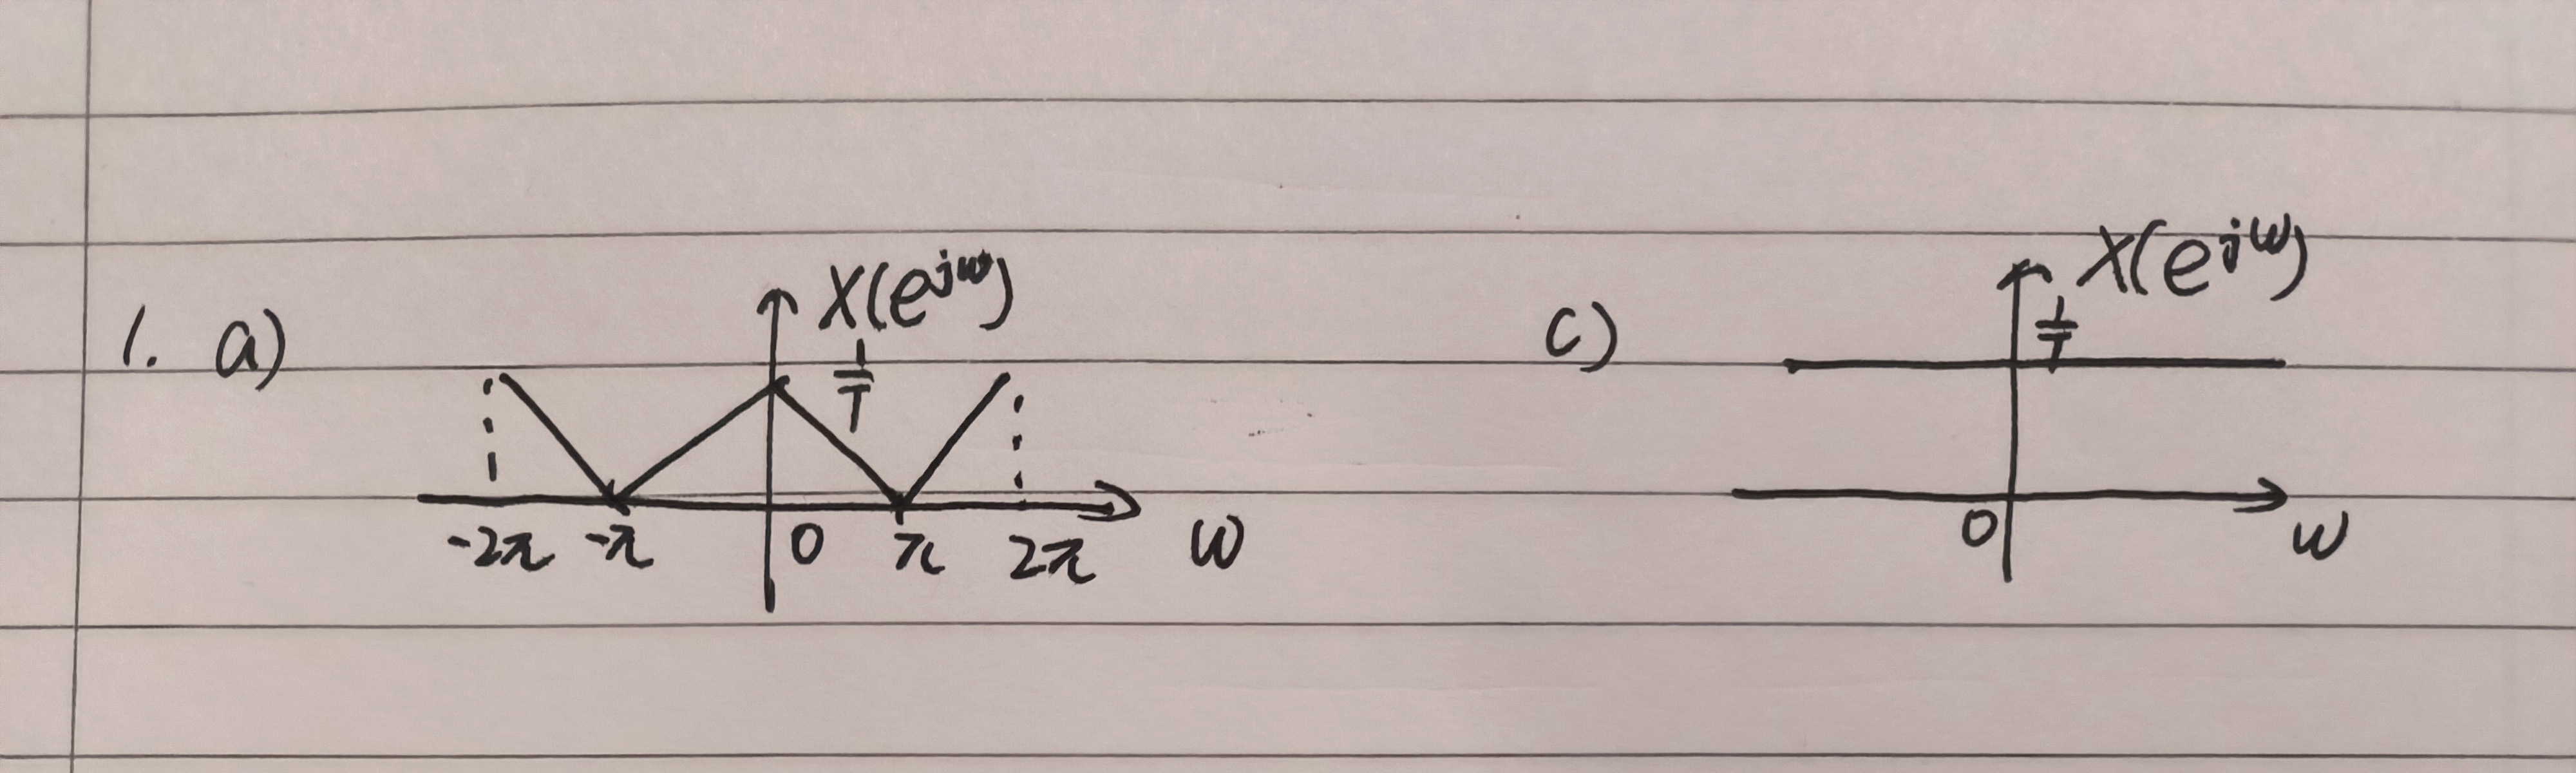 1. a)
X(e^{jω})
1/T
-2π -π 0 π 2π ω
c)
X(e^{jω})
1/T
0 ω